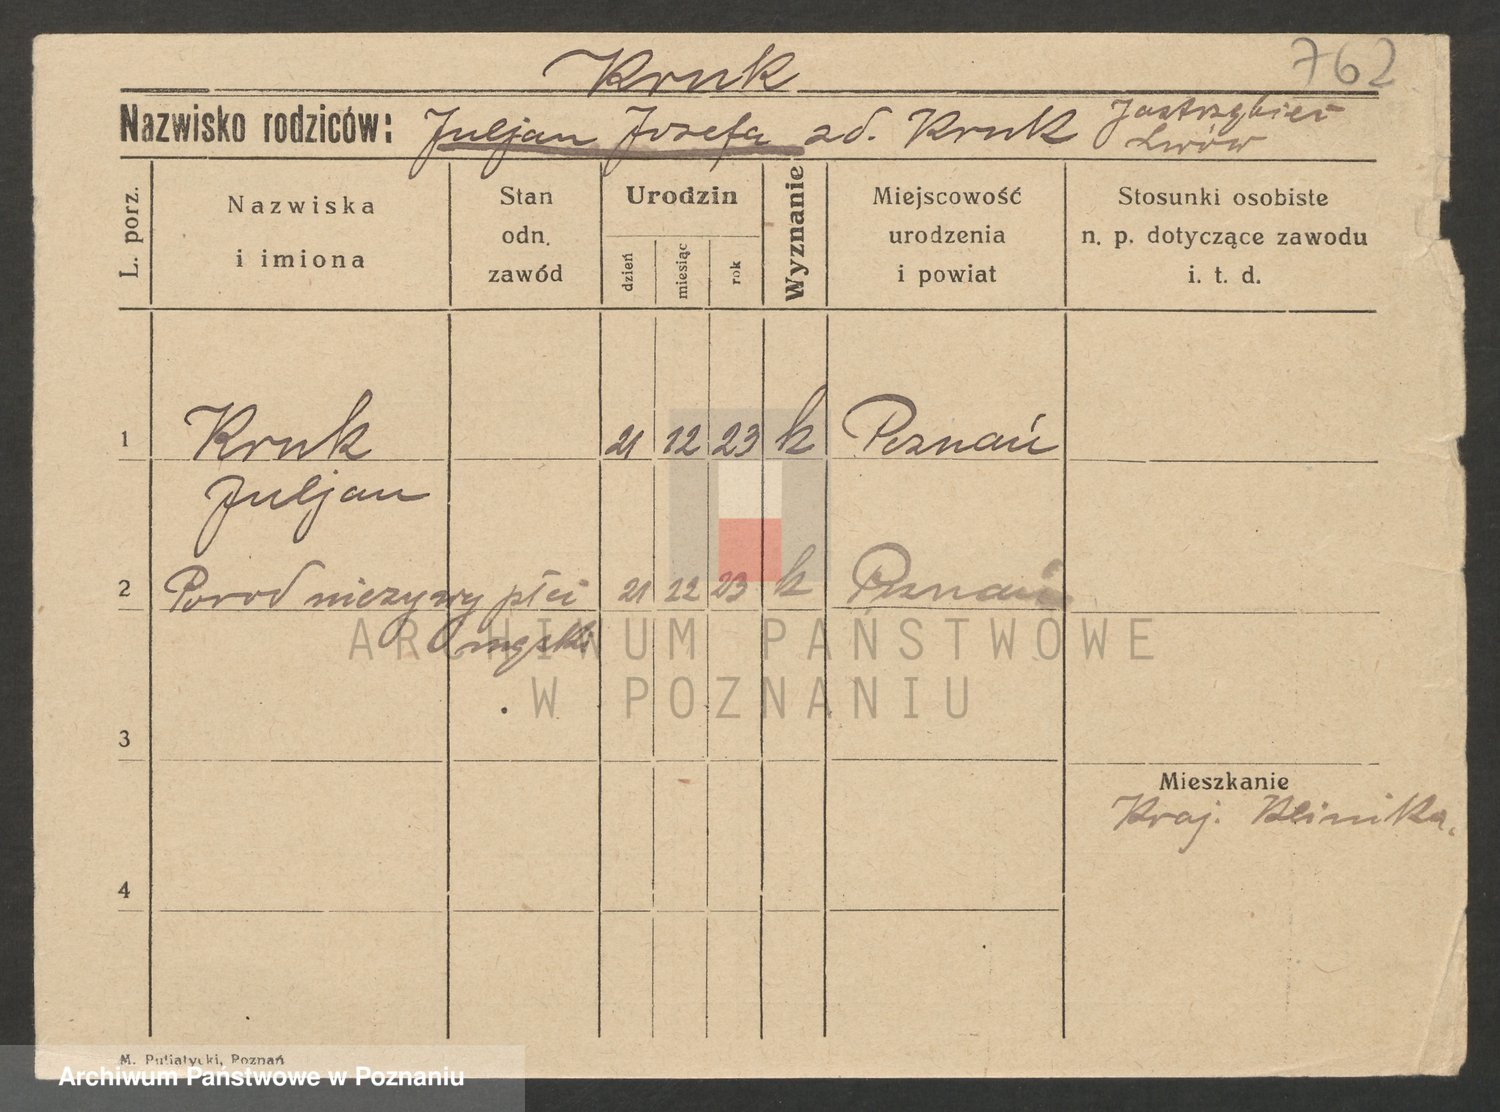 762
Kruk
Nazwisko rodziców: Juljan Józefa zd. Kruk Jastrzębiec
Lwów
L. porz.
Nazwiska
i imiona
Stan
odn.
zawód
Urodzin
dzień
miesiąc
rok
Wyznanie
Miejscowość
urodzenia
i powiat
Stosunki osobiste
n. p. dotyczące zawodu
i. t. d.
1 Kruk 21 12 23 k Poznań
Juljan
2 Porod nieżywy płci 21 12 23 k Poznań
męski
ARCHIWUM PAŃSTWOWE
W POZNANIU
3
Mieszkanie
Kraj. Klinika.
4
M. Putiatycki, Poznań
Archiwum Państwowe w Poznaniu